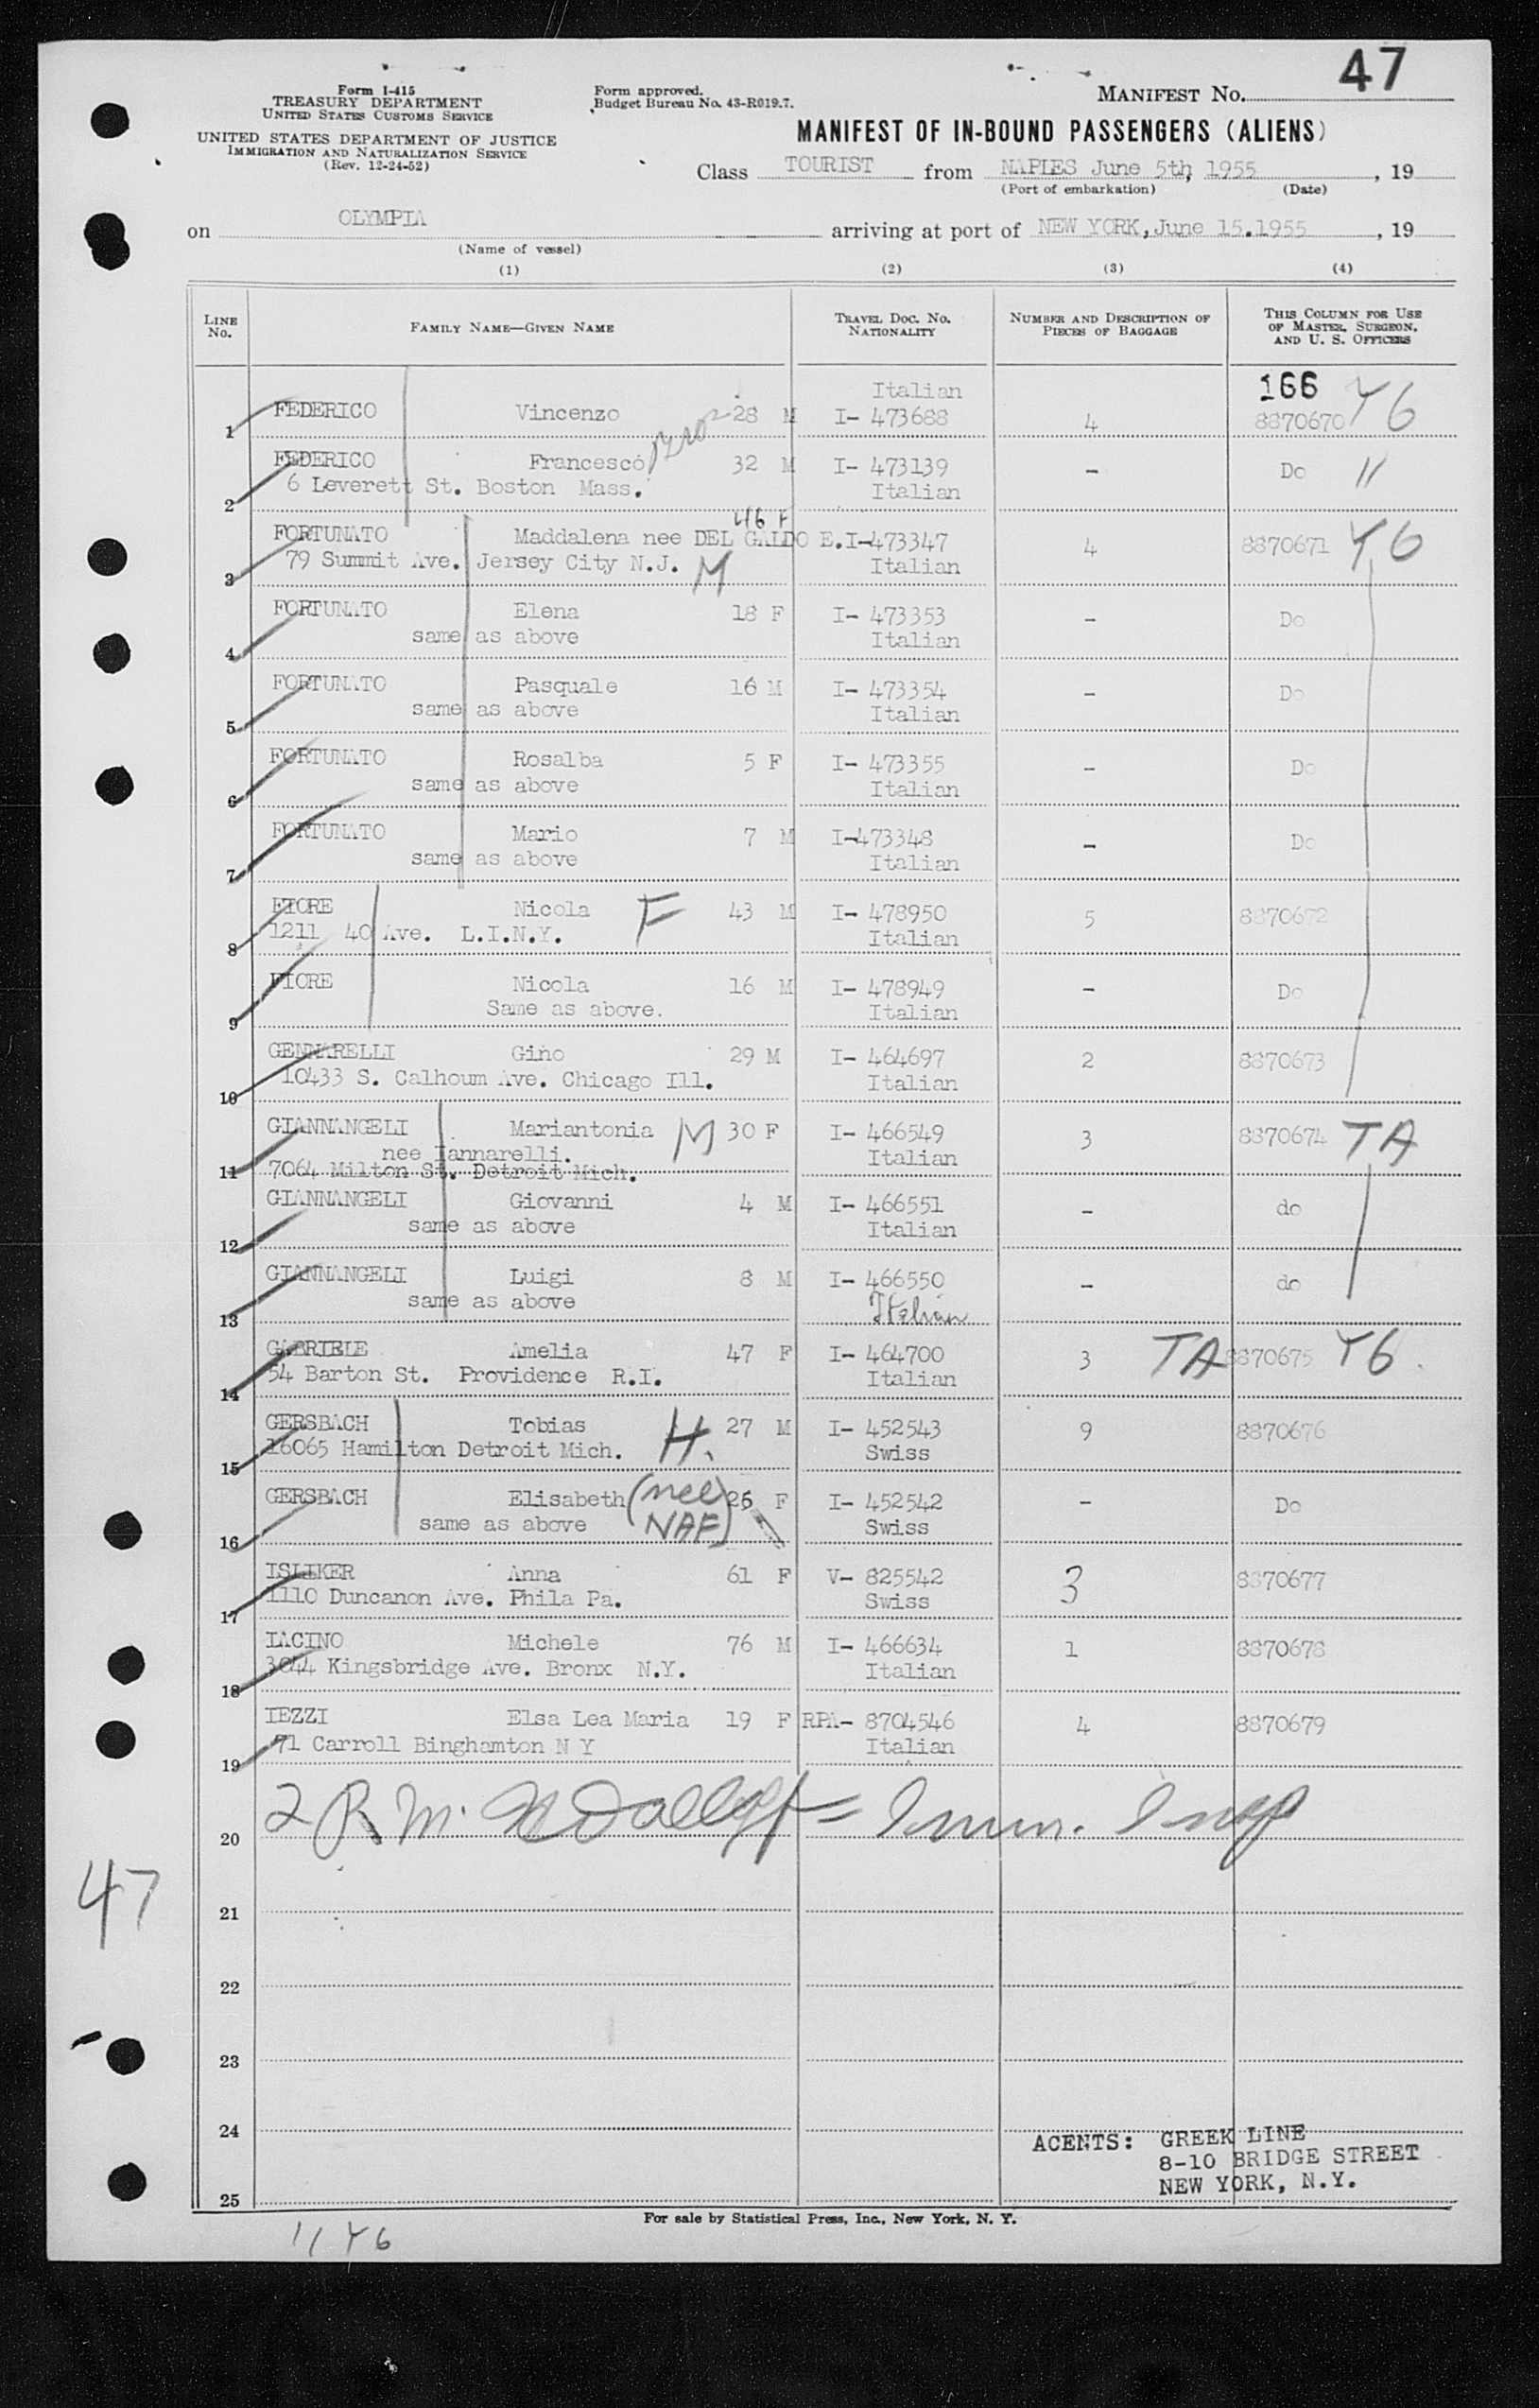 47
Form I-415
TREASURY DEPARTMENT
UNITED STATES CUSTOMS SERVICE
UNITED STATES DEPARTMENT OF JUSTICE
IMMIGRATION AND NATURALIZATION SERVICE
(Rev. 12-24-52)
Form approved.
Budget Bureau No. 43-R019.7.
MANIFEST No.
MANIFEST OF IN-BOUND PASSENGERS (ALIENS)
Class TOURIST from NAPLES June 5th, 1955, 19
(Port of embarkation) (Date)
on OLYMPIA arriving at port of NEW YORK, June 15.1955, 19
(Name of vessel)
(1) (2) (3) (4)
LINE No. FAMILY NAME—GIVEN NAME TRAVEL DOC. NO. NATIONALITY NUMBER AND DESCRIPTION OF PIECES OF BAGGAGE THIS COLUMN FOR USE OF MASTER, SURGEON, AND U. S. OFFICERS
Italian 166
1 FEDERICO Vincenzo 28 M I- 473688 4 8870670 Y6
FEDERICO Francesco Bros 32 M I- 473139 - Do 11
2 6 Leverett St. Boston Mass. Italian
46 F
FORTUNATO Maddalena nee DEL GALDO E. I-473347 4 8870671 Y6
3 79 Summit Ave. Jersey City N.J. M Italian
FORTUNATO Elena 18 F I- 473353 - Do
4 same as above Italian
FORTUNATO Pasquale 16 M I- 473354 - Do
5 same as above Italian
FORTUNATO Rosalba 5 F I- 473355 - Do
6 same as above Italian
FORTUNATO Mario 7 M I-473348 - Do
7 same as above Italian
FIORE Nicola F 43 M I- 478950 5 8870672
8 1211 40 Ave. L.I.N.Y. Italian
FIORE Nicola 16 M I- 478949 - Do
9 Same as above. Italian
GENNARELLI Gino 29 M I- 464697 2 8870673
10 10433 S. Calhoum Ave. Chicago Ill. Italian
GIANNANGELI Mariantonia M 30 F I- 466549 3 8870674 TA
nee Iannarelli. Italian
11 7064 Milton St. Detroit Mich.
GIANNANGELI Giovanni 4 M I- 466551 - do
12 same as above Italian
GIANNANGELI Luigi 8 M I- 466550 - do
13 same as above Italian
GABRIELE Amelia 47 F I- 464700 3 TA 8870675 Y6
14 54 Barton St. Providence R.I. Italian
GERSBACH Tobias H. 27 M I- 452543 9 8870676
15 16065 Hamilton Detroit Mich. Swiss
GERSBACH Elisabeth (nee NAF) 26 F I- 452542 - Do
16 same as above Swiss
ISLIKER Anna 61 F V- 825542 3 8870677
17 1110 Duncanon Ave. Phila Pa. Swiss
IACINO Michele 76 M I- 466634 1 8870678
18 3044 Kingsbridge Ave. Bronx N.Y. Italian
IEZZI Elsa Lea Maria 19 F RPA- 8704546 4 8870679
19 71 Carroll Binghamton N Y Italian
20 2 R M. Imm. Insp
47
21
22
23
24
AGENTS: GREEK LINE
8-10 BRIDGE STREET
NEW YORK, N.Y.
25
For sale by Statistical Press, Inc., New York, N. Y.
11 Y6